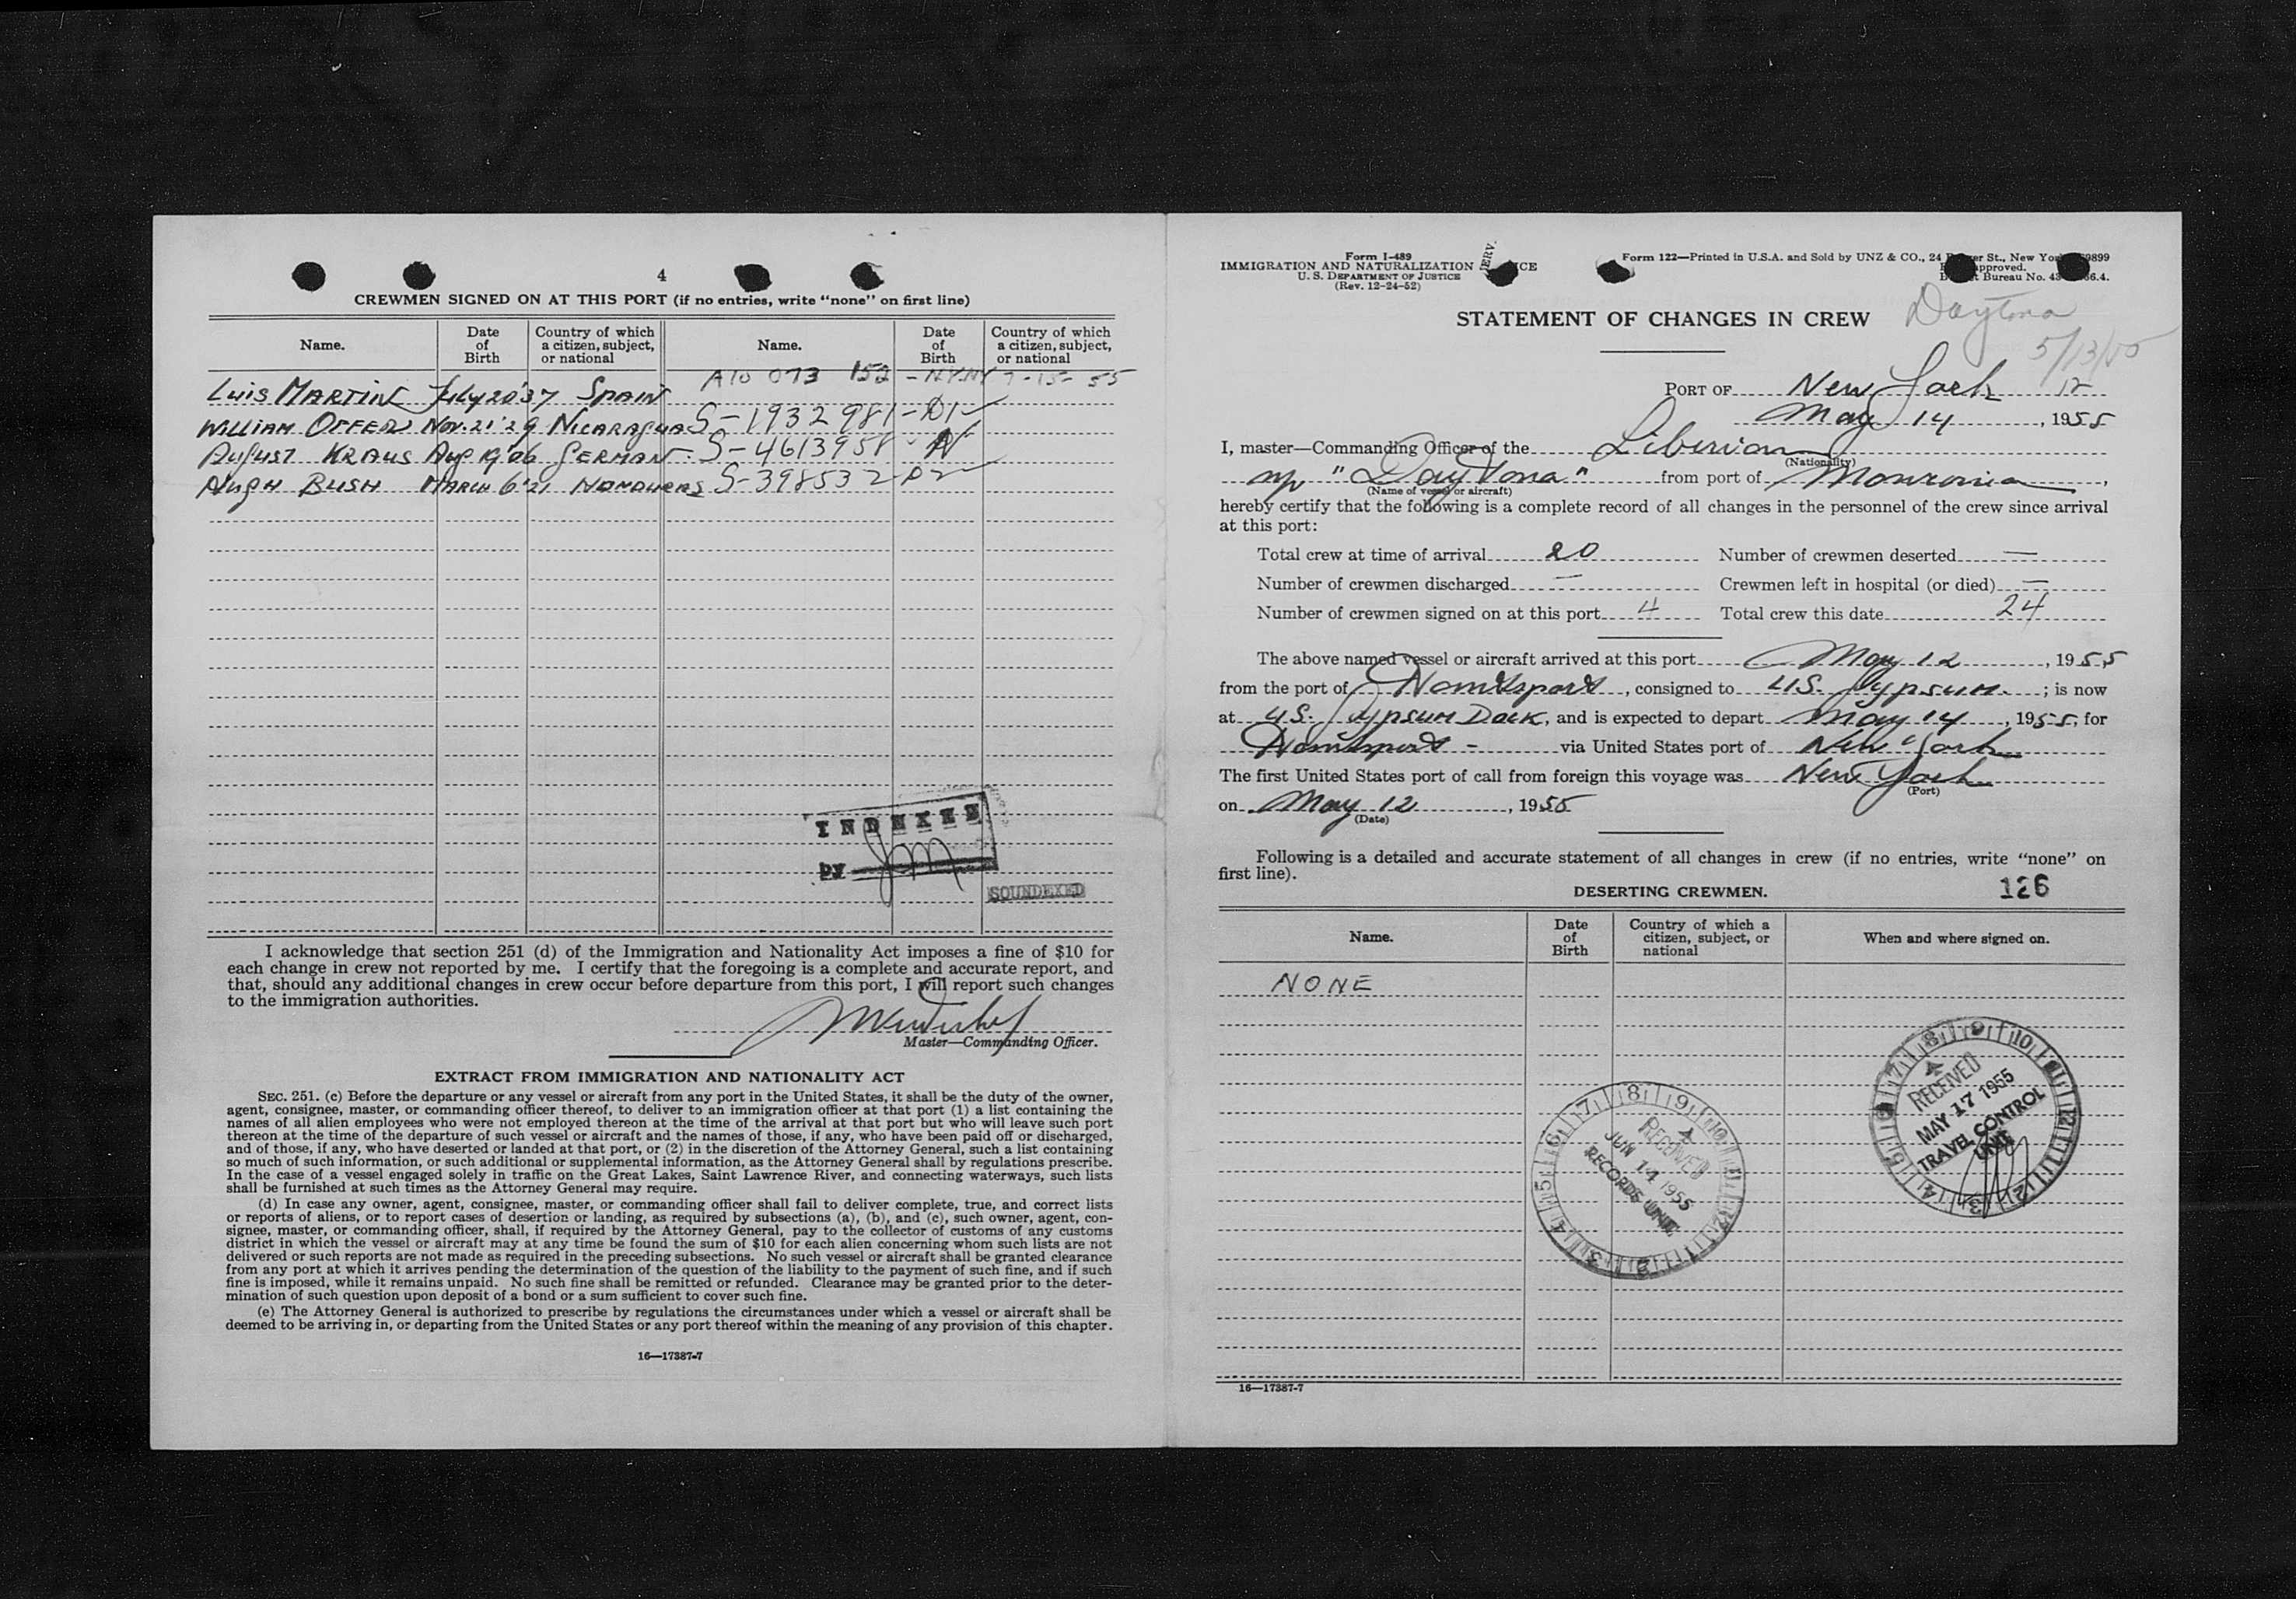 4
CREWMEN SIGNED ON AT THIS PORT (if no entries, write "none" on first line)
Name. Date of Birth Country of which a citizen, subject, or national Name. Date of Birth Country of which a citizen, subject, or national
Luis MARTIN July 20'37 SPAIN A10 073 152 - NY.NY 7-15-55
WILLIAM OFFER Nov. 21'29 NICARAGUA S-1932981-D1
AUGUST KRAUS Aug 19'06 GERMAN S-4613958
HUGH BUSH MARCH 6'21 HONDURAS S-398532-D2
INDEXED
by
SOUNDEXED
I acknowledge that section 251 (d) of the Immigration and Nationality Act imposes a fine of $10 for
each change in crew not reported by me. I certify that the foregoing is a complete and accurate report, and
that, should any additional changes in crew occur before departure from this port, I will report such changes
to the immigration authorities.
Master—Commanding Officer.
EXTRACT FROM IMMIGRATION AND NATIONALITY ACT
SEC. 251. (c) Before the departure or any vessel or aircraft from any port in the United States, it shall be the duty of the owner,
agent, consignee, master, or commanding officer thereof, to deliver to an immigration officer at that port (1) a list containing the
names of all alien employees who were not employed thereon at the time of the arrival at that port but who will leave such port
thereon at the time of the departure of such vessel or aircraft and the names of those, if any, who have been paid off or discharged,
and of those, if any, who have deserted or landed at that port, or (2) in the discretion of the Attorney General, such a list containing
so much of such information, or such additional or supplemental information, as the Attorney General shall by regulations prescribe.
In the case of a vessel engaged solely in traffic on the Great Lakes, Saint Lawrence River, and connecting waterways, such lists
shall be furnished at such times as the Attorney General may require.
(d) In case any owner, agent, consignee, master, or commanding officer shall fail to deliver complete, true, and correct lists
or reports of aliens, or to report cases of desertion or landing, as required by subsections (a), (b), and (c), such owner, agent, con-
signee, master, or commanding officer, shall, if required by the Attorney General, pay to the collector of customs of any customs
district in which the vessel or aircraft may at any time be found the sum of $10 for each alien concerning whom such lists are not
delivered or such reports are not made as required in the preceding subsections. No such vessel or aircraft shall be granted clearance
from any port at which it arrives pending the determination of the question of the liability to the payment of such fine, and if such
fine is imposed, while it remains unpaid. No such fine shall be remitted or refunded. Clearance may be granted prior to the deter-
mination of such question upon deposit of a bond or a sum sufficient to cover such fine.
(e) The Attorney General is authorized to prescribe by regulations the circumstances under which a vessel or aircraft shall be
deemed to be arriving in, or departing from the United States or any port thereof within the meaning of any provision of this chapter.
16—17387-7
Form I-489
IMMIGRATION AND NATURALIZATION
U. S. DEPARTMENT OF JUSTICE
(Rev. 12-24-52)
Form 122—Printed in U.S.A. and Sold by UNZ & CO., 24 St., New
approved.
Bureau No.
STATEMENT OF CHANGES IN CREW
Daytona
5/13/55
PORT OF New York 12
May 14, 1955
I, master—Commanding Officer of the Liberian
(Nationality)
"Daytona" from port of Monrovia,
(Name of vessel or aircraft)
hereby certify that the following is a complete record of all changes in the personnel of the crew since arrival
at this port:
Total crew at time of arrival 20 Number of crewmen deserted —
Number of crewmen discharged — Crewmen left in hospital (or died) —
Number of crewmen signed on at this port 4 Total crew this date 24
The above named vessel or aircraft arrived at this port May 12, 1955
from the port of Hantsport, consigned to U.S. Gypsum; is now
at U.S. Gypsum Dock, and is expected to depart May 14, 1955, for
Hantsport - via United States port of New York
The first United States port of call from foreign this voyage was New York
(Port)
on May 12, 1955
(Date)
Following is a detailed and accurate statement of all changes in crew (if no entries, write "none" on
first line).
DESERTING CREWMEN. 126
Name. Date of Birth Country of which a citizen, subject, or national When and where signed on.
NONE
RECEIVED
MAY 17 1955
TRAVEL CONTROL
UNIT
RECEIVED
JUN 14 1955
RECORDS UNIT
16—17387-7